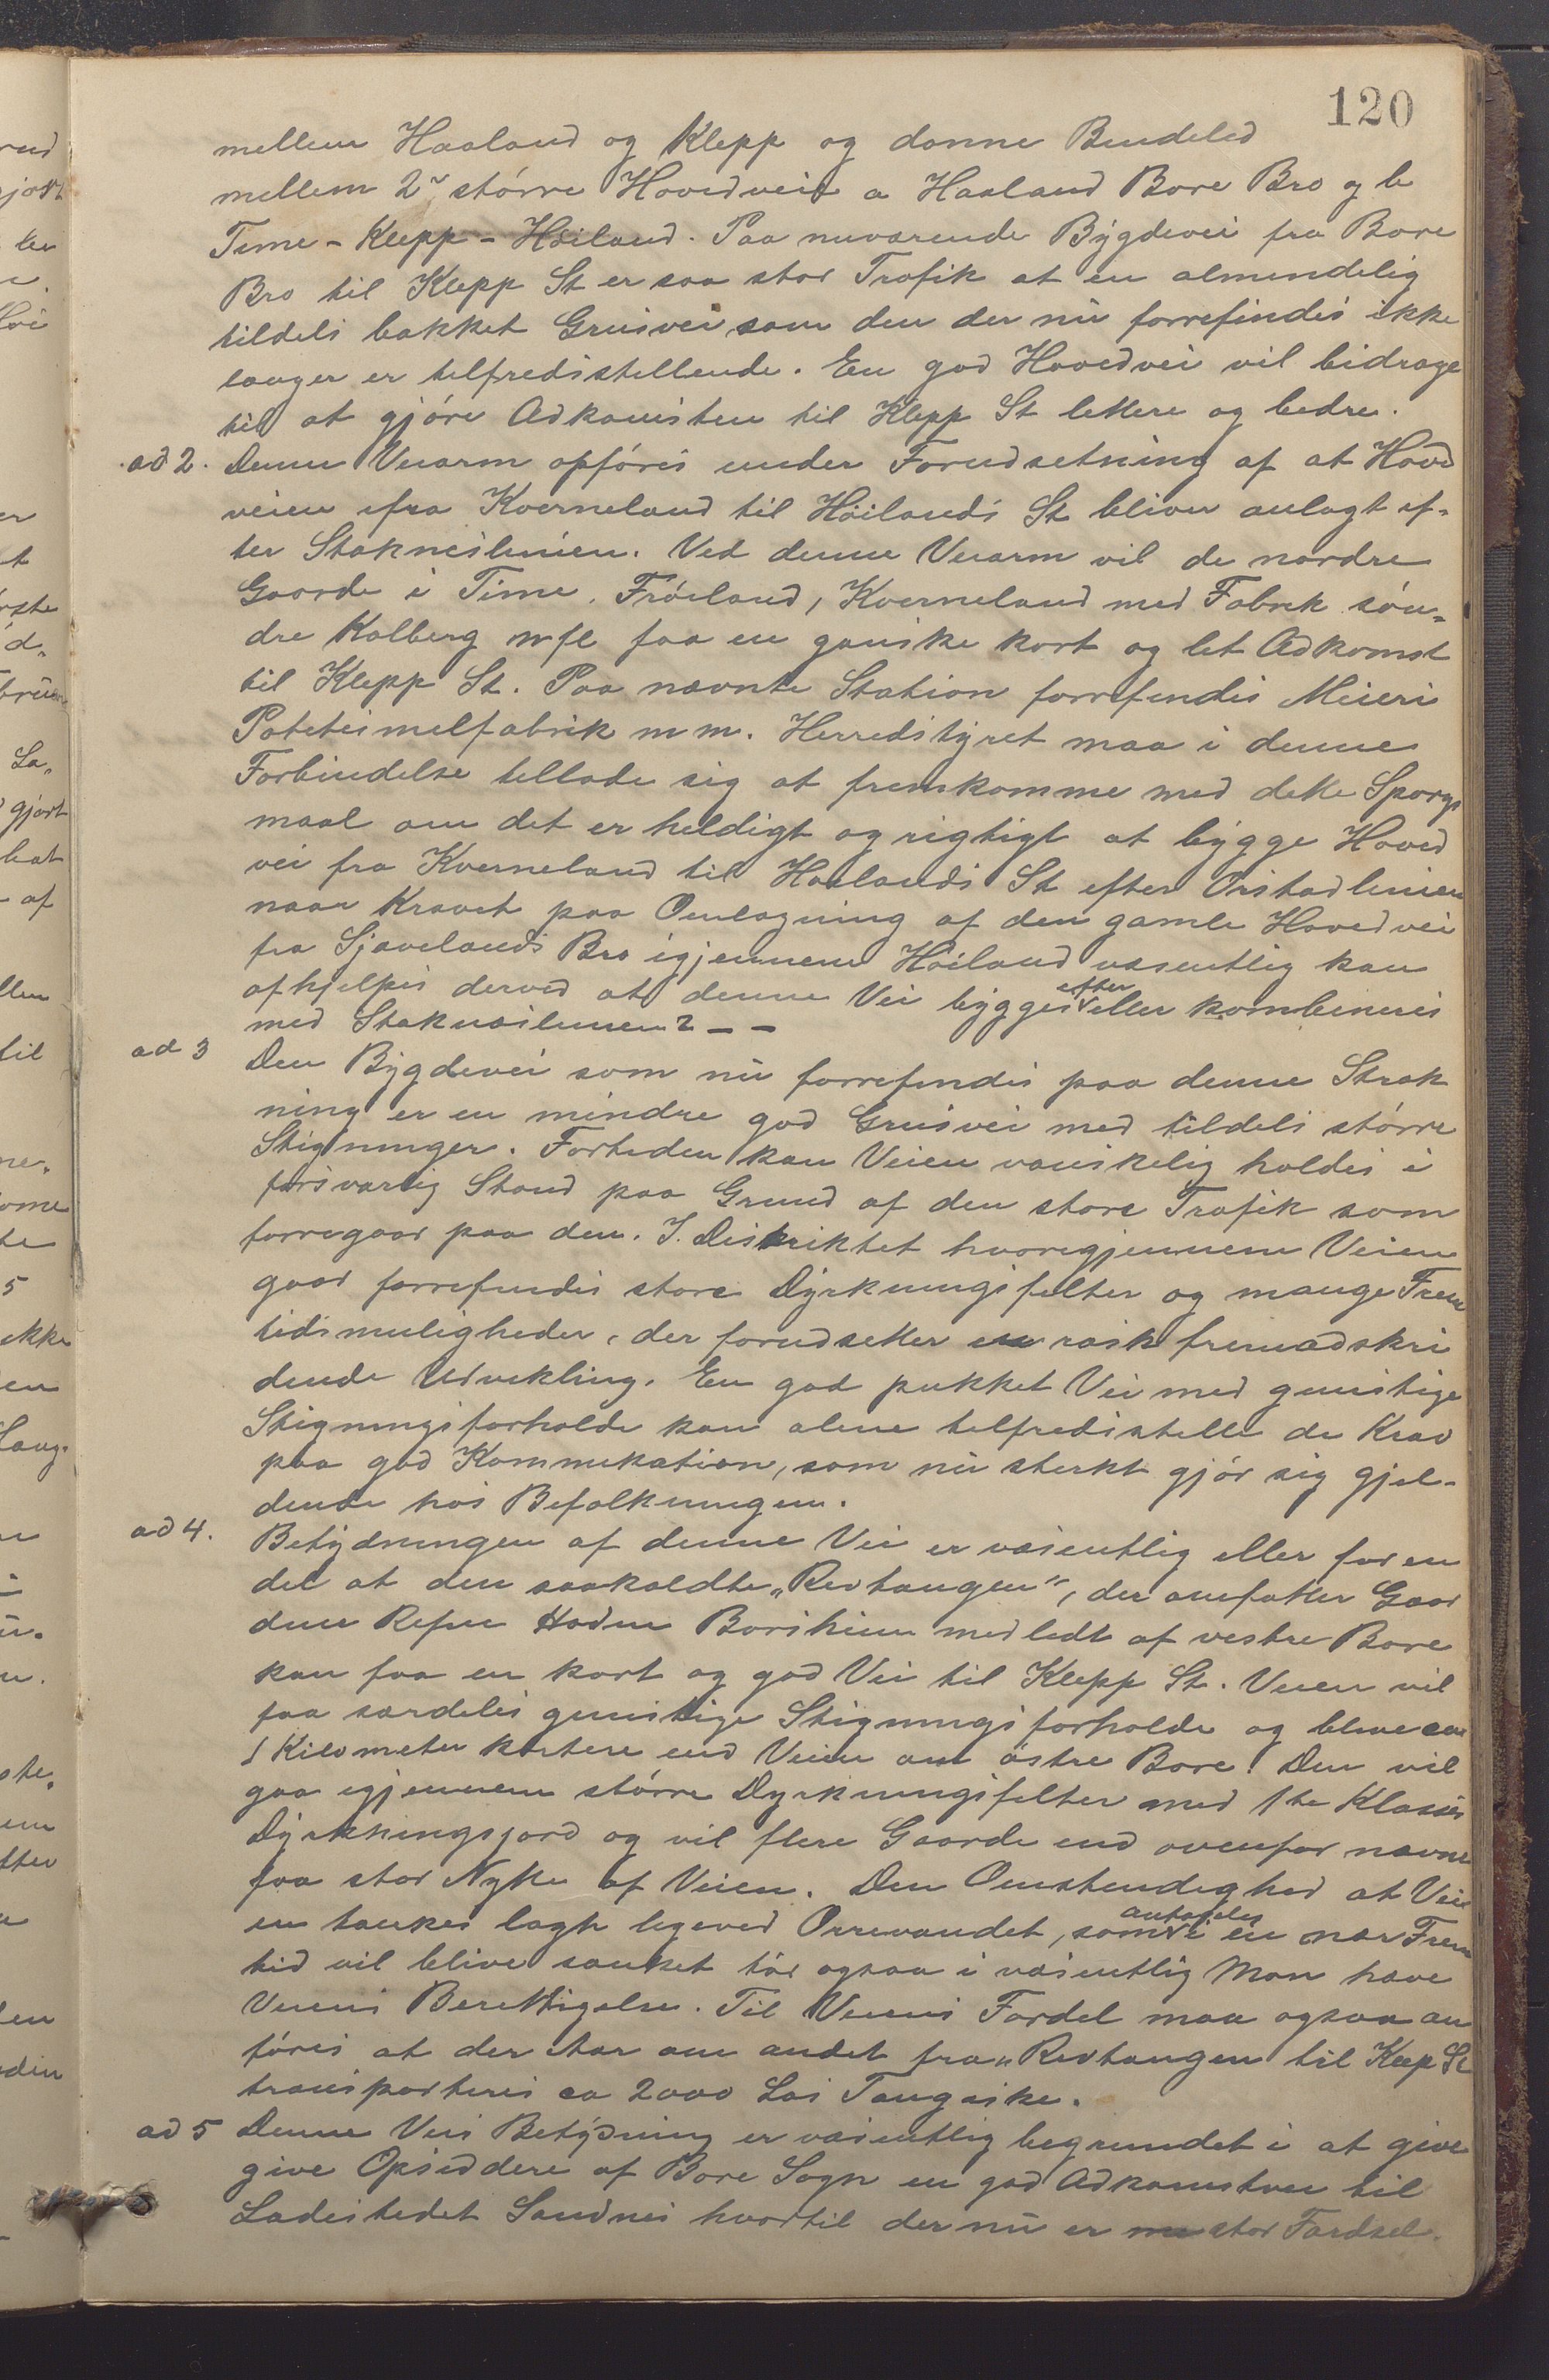 120
mellem Haaland og Klepp og danne Bindeled
mellem 2r større Hovedveie a Haaland Bore Bro og b
Time - Klepp - Høiland. Paa nuværende Bygdevei fra Bore
Bro til Klepp St er saa stor Trafik at en almindelig
tildels bakket Grusvei som den der nu forrefindes ikke
længer er tilfredsstillende. En god Hovedvei vil bidrage
til at gjøre Adkomsten til Klepp St lettere og bedre.
ad 2. Denne Veiarm opføres under Forudsetning af at Hoved
veien ifra Kverneland til Høilands St bliver anlagt ef-
ter Stakneslinien. Ved denne Veiarm vil de nordre
Gaarde i Time, Frøiland, Kverneland med Fabrik søn-
dre Kalberg mfl faa en ganske kort og let Adkomst
til Klepp St. Paa nævnte Station forrefindes Meieri
Potetesmelfabrik m m. Herredstyret maa i denne
Forbindelse tillade sig at fremkomme med dette Sporgs
maal om det er heldigt og rigtigt at bygge Hoved
vei fra Kverneland til Høilands St efter Orstadlinien
naar Kravet paa Omlægning af den gamle Hovedvei
fra Sjævelands Bro igjennem Høiland væsentlig kan
afhjelpes derved at denne Vei bygges efter eller kombineres
med Staknæslinien? - -
ad 3 Den Bygdevei som nu forrefindes paa denne Stræk
ning er en mindre god Grusvei med tildels større
Stigninger. Fortiden kan Veien vanskelig holdes i
forsvarlig Stand paa Grund af den store Trafik som
forregaar paa den. I Distriktet hvorigjennem Veien
gaar forrefindes store Dyrkningsfelter og mange Frem
tidsmuligheder, der forudsetter en rask fremadskri
dende Udvikling. En god pukket Vei med gunstige
Stigningsforholde kan alene tilfredsstille de Krav
paa god Kommukation, som nu sterkt gjør sig gjel-
dende hos Befolkningen.
ad 4. Betydningen af denne Vei er væsentlig eller for en
del at den saakaldte "Revtangen", der omfatter Gaar
dene Refne Hodne Borsheim med ledt af vestre Bore
kan faa en kort og god Vei til Klepp St. Veien vil
faa særdeles gunstige Stigningsforholde og blive ca
1 Kilometer kortere end Veien om østre Bore. Den vil
gaa igjennem større Dyrkningsfelter med 1te Klasses
Dyrkningsjord og vil flere Gaarde end ovenfor nævne
faa stor Nytte af Veien. Den Omstendighed at Vei
en tænkes lagt ligeved Orrevandet, som antageles i en nær Frem
tid vil blive sænket tør ogsaa i væsentlig Mon hæve
Veiens Berettigelse. Til Veiens Fordel maa ogsaa an
føres at der Aar om andet fra "Revtangen til Klep St
transporteres ca 2000 Læs Tangaske.
ad 5 Denne Veis Betydning er væsentlig begrundet i at give
give Opsiddere af Bore Sogn en god Adkomstvei til
Ladestedet Sandnes hvortil der nu er stor Færdsel.